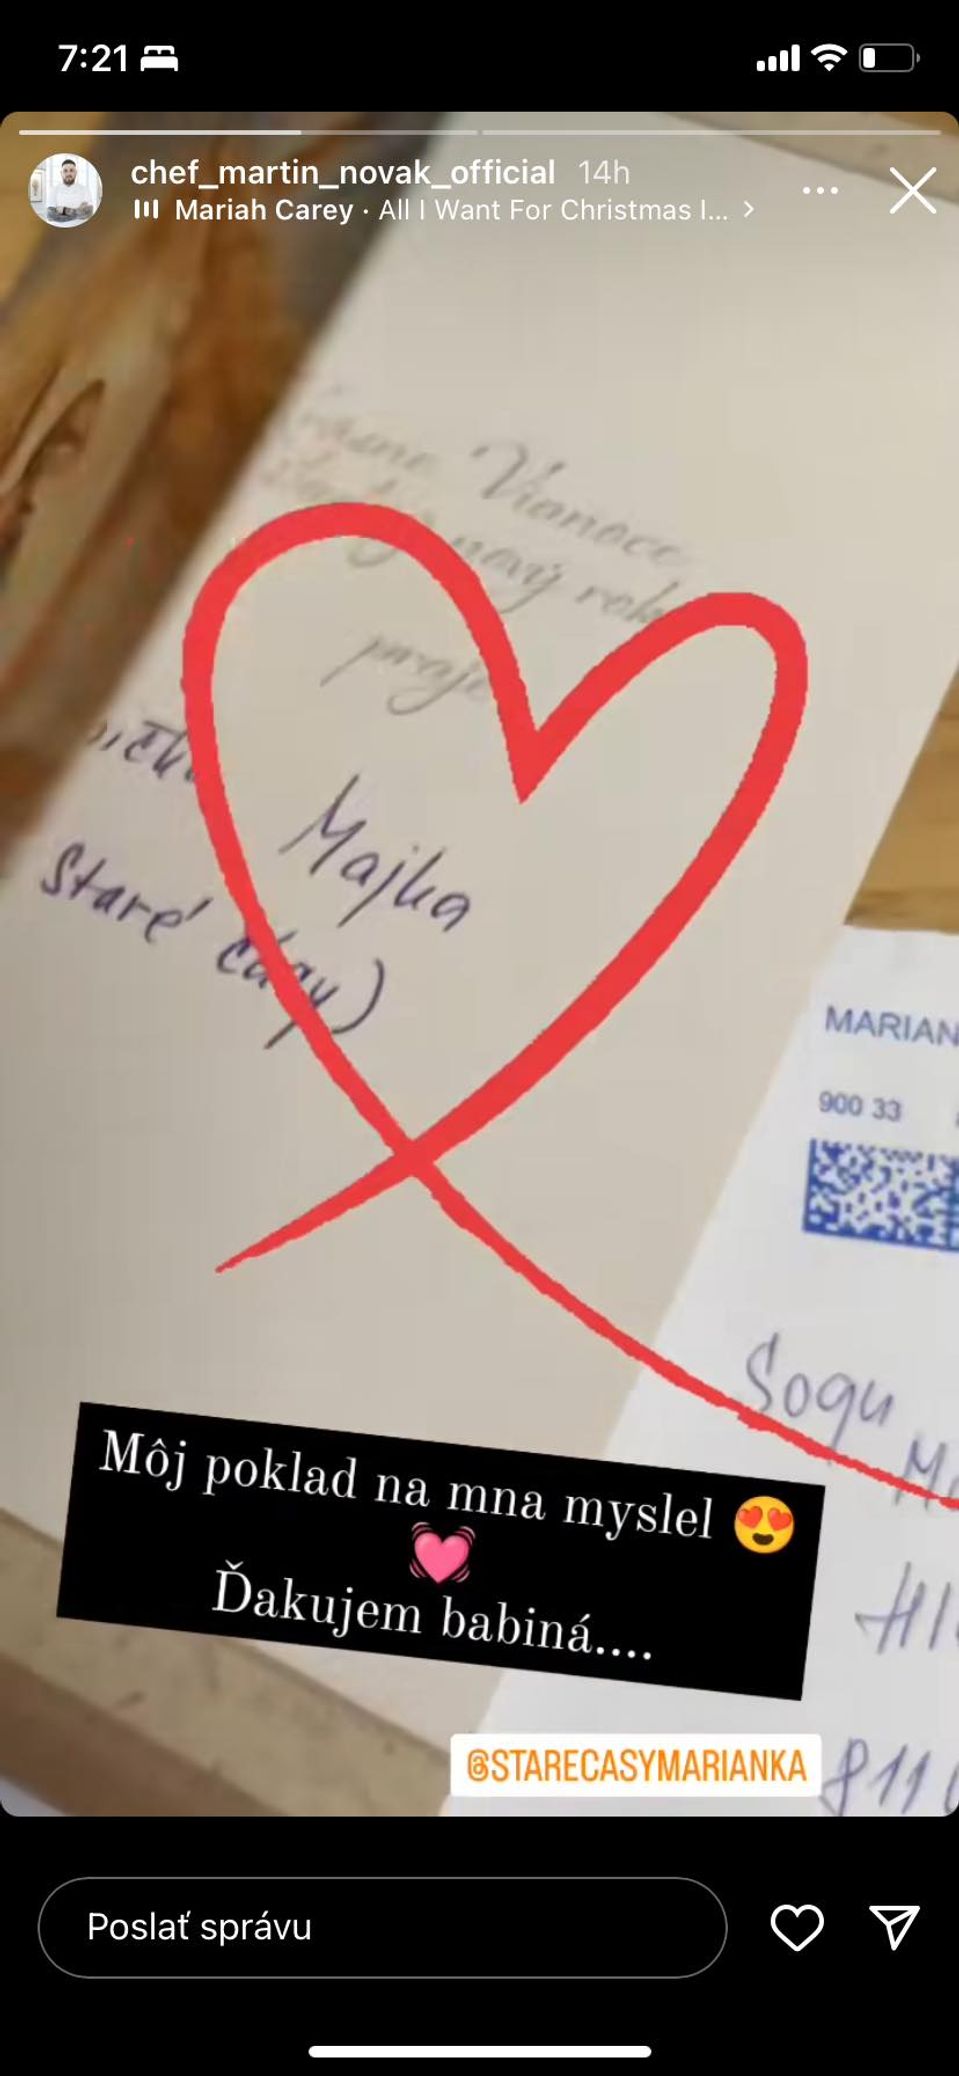 7:21
chef_martin_novak_official 14h
Mariah Carey · All I Want For Christmas I... >
Vianoce
nový rok
praje
Majka
Staré časy)
MARIAN
900 33
Sogu
811
Môj poklad na mna myslel 😍
💓
Ďakujem babiná....
@STARECASYMARIANKA
Poslať správu